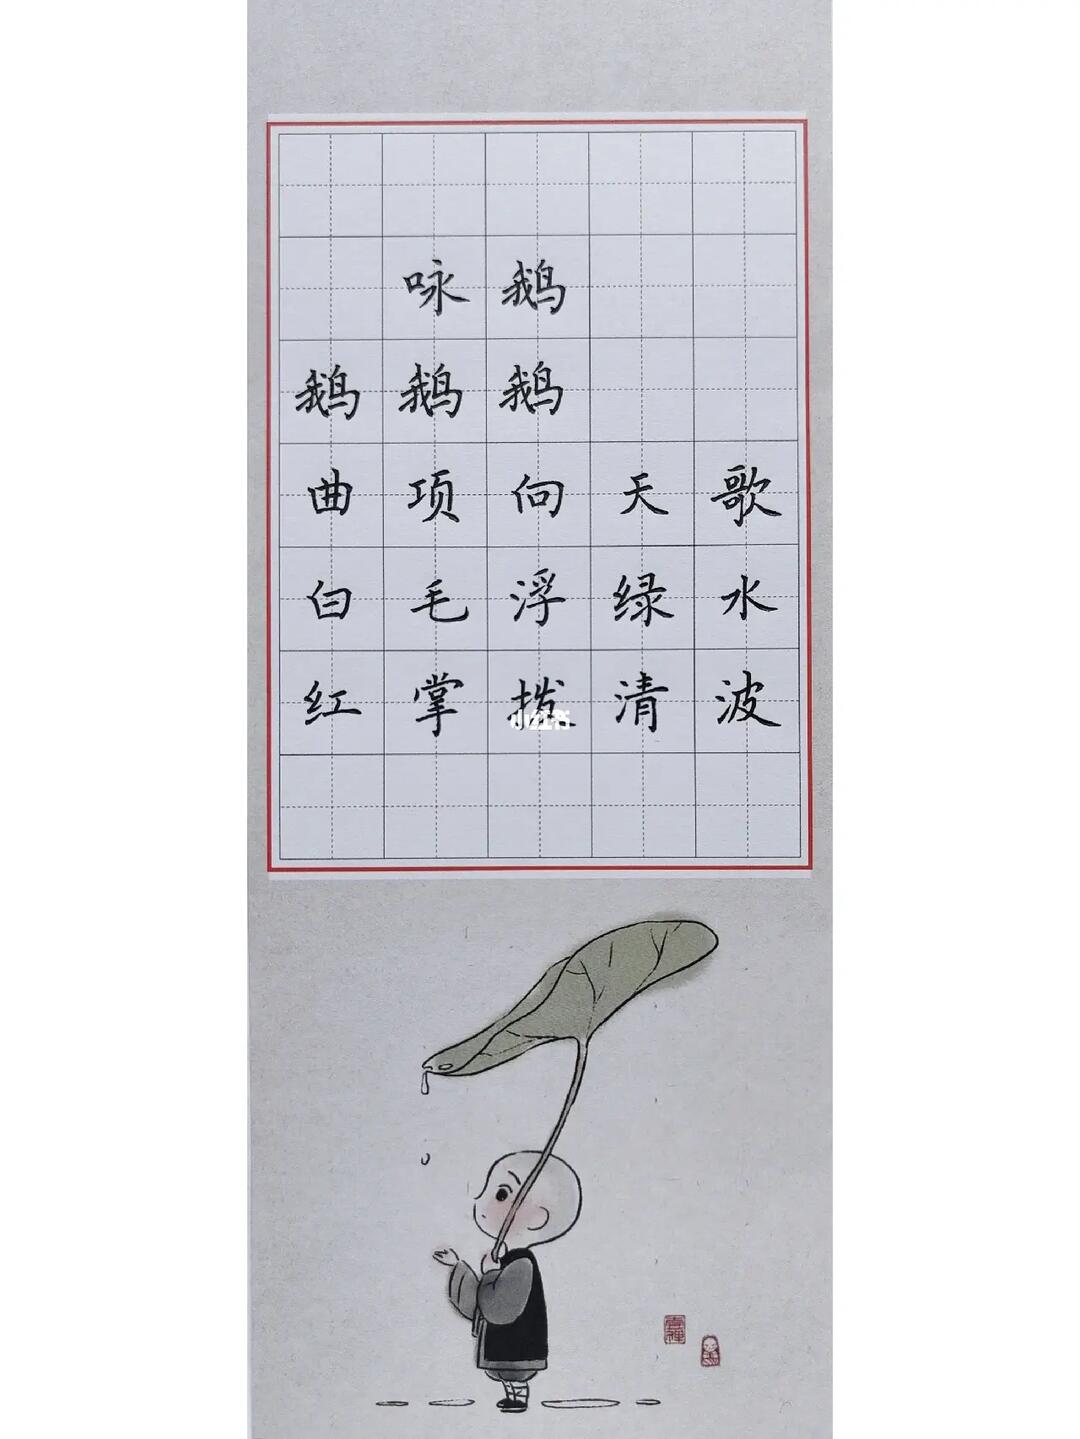 咏鹅
鹅鹅鹅
曲项向天歌
白毛浮绿水
红掌拨清波
小红书